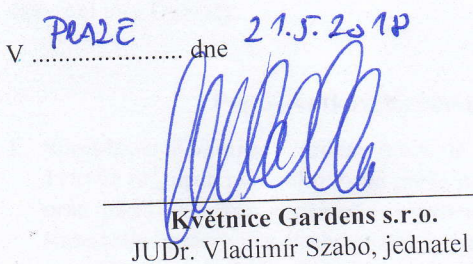 V PRAZE dne 21.5.2018
Květnice Gardens s.r.o.
JUDr. Vladimír Szabo, jednatel